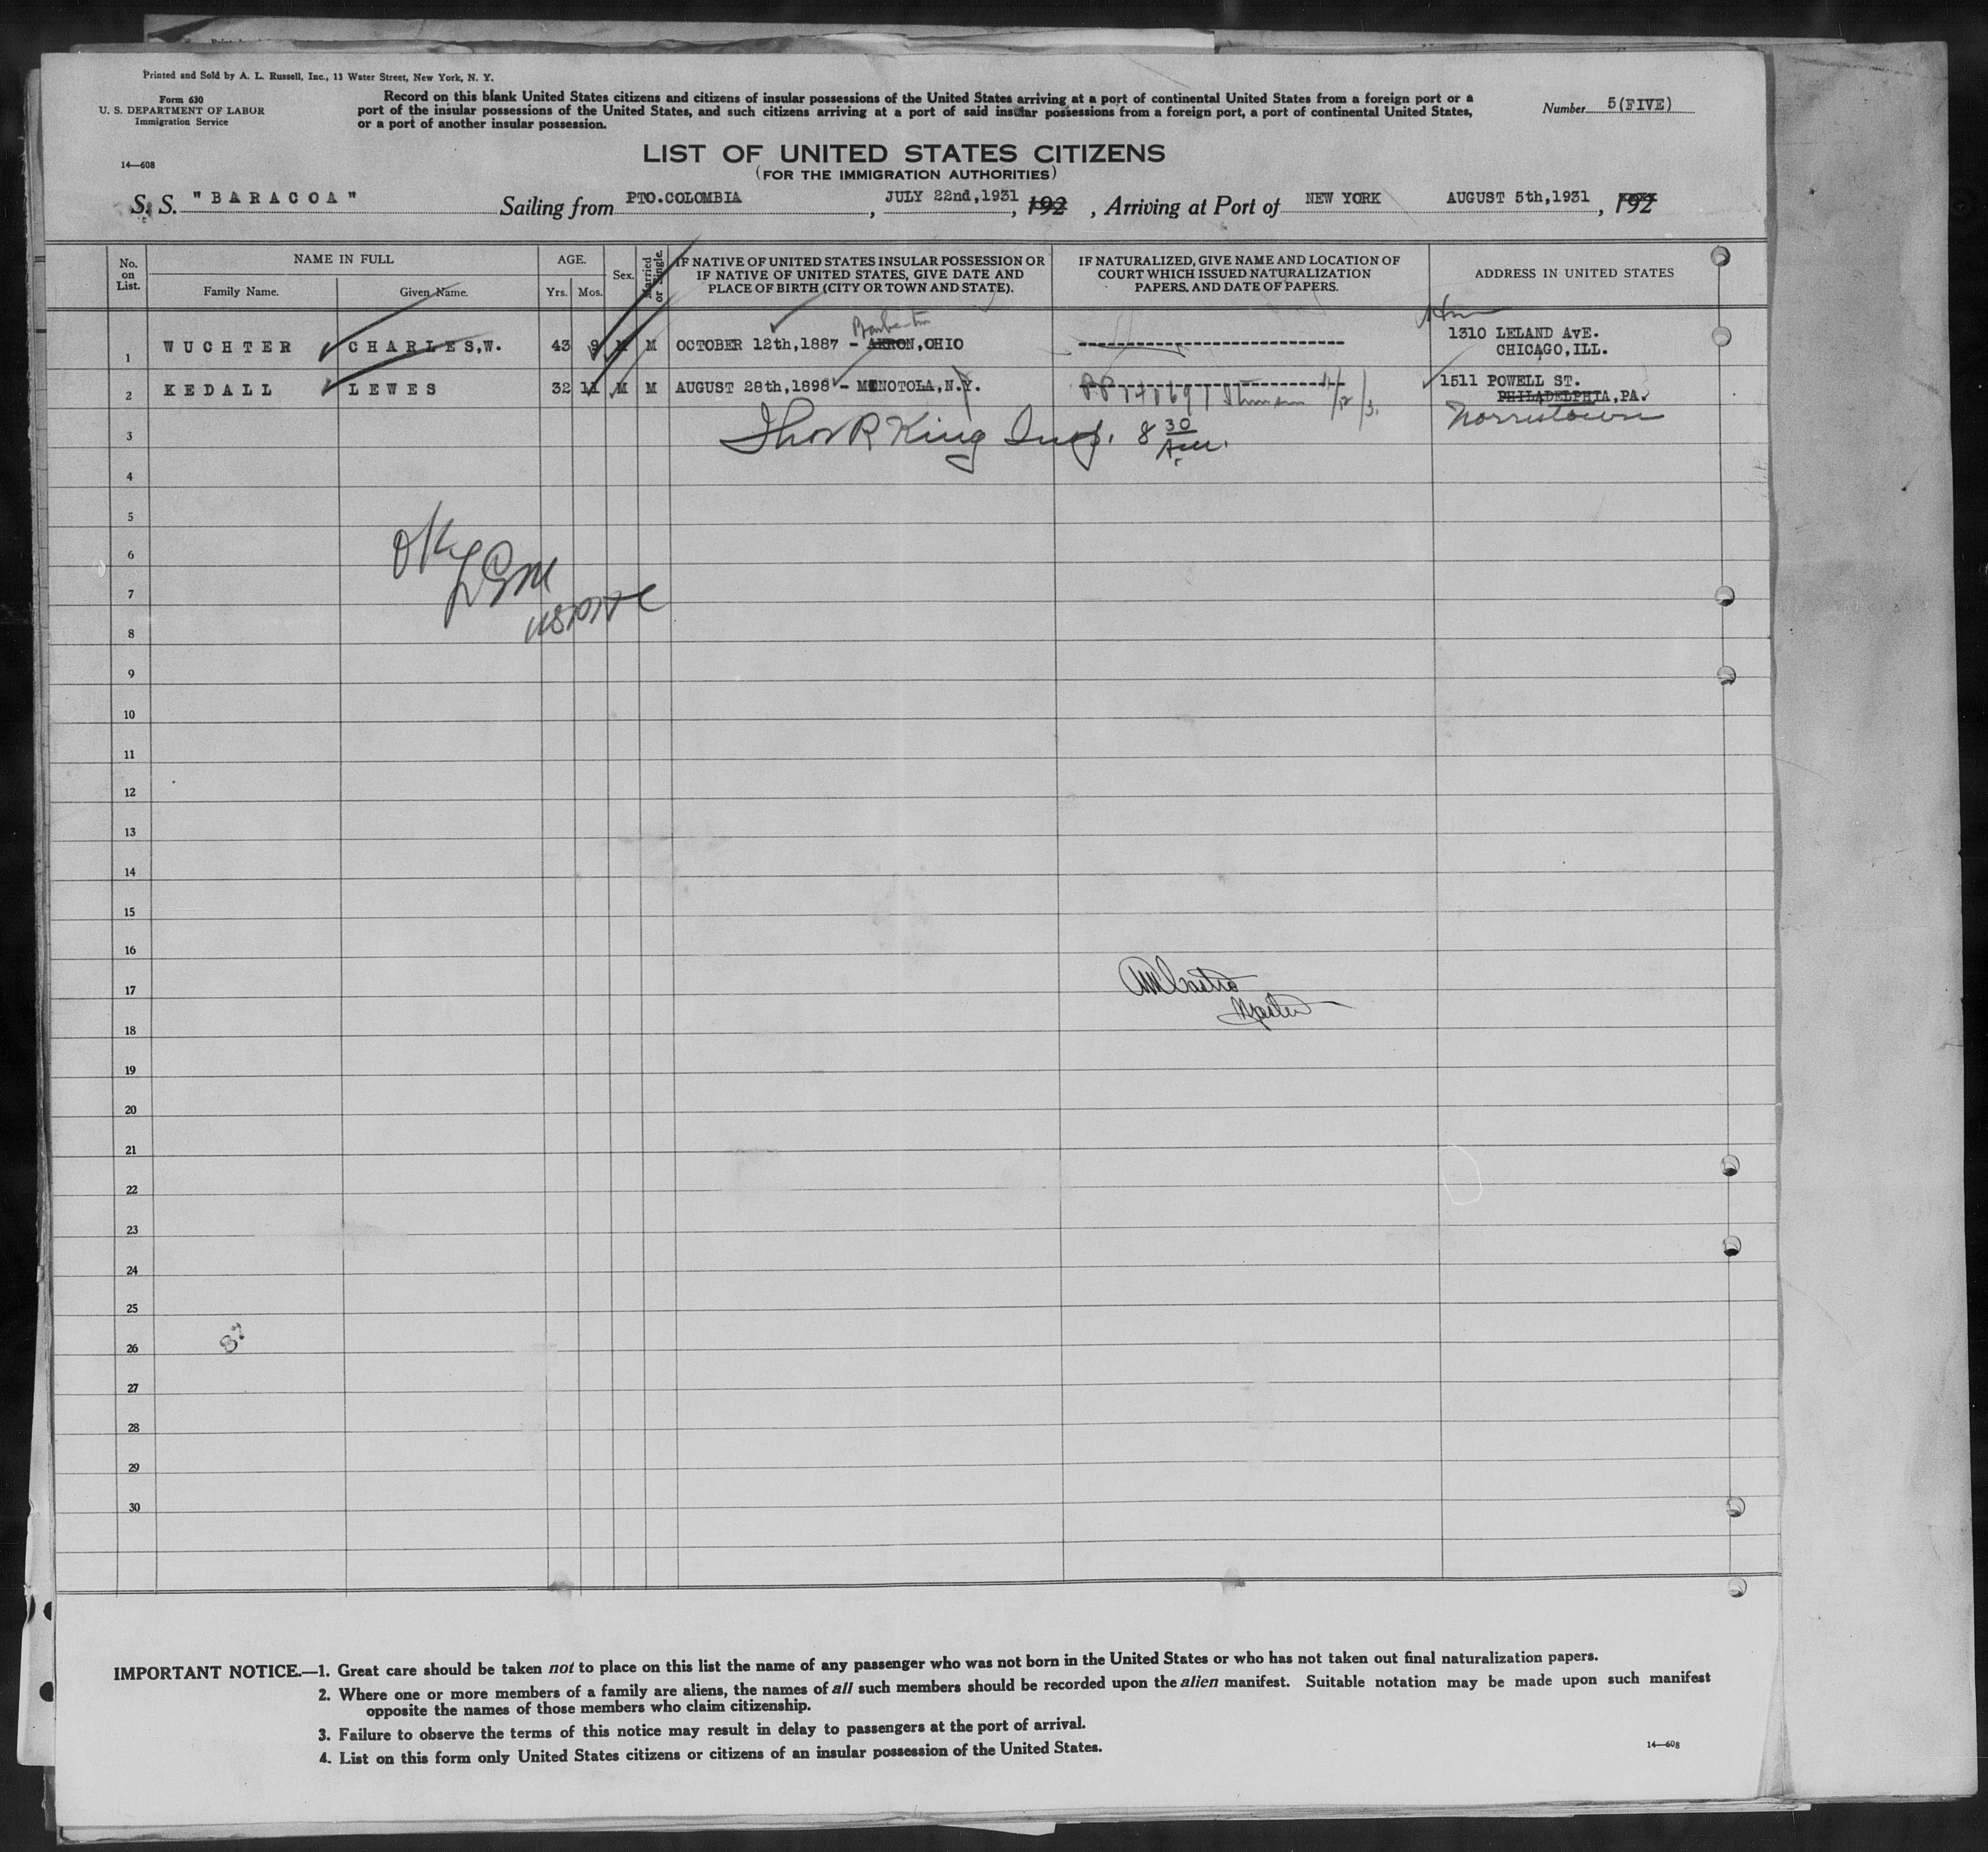 Printed and Sold by A. L. Russell, Inc., 13 Water Street, New York, N. Y.
Form 630
U. S. DEPARTMENT OF LABOR
Immigration Service
14—608
Record on this blank United States citizens and citizens of insular possessions of the United States arriving at a port of continental United States from a foreign port or a
port of the insular possessions of the United States, and such citizens arriving at a port of said insular possessions from a foreign port, a port of continental United States,
or a port of another insular possession.
Number 5(FIVE)
LIST OF UNITED STATES CITIZENS
(FOR THE IMMIGRATION AUTHORITIES)
S. S. "BARACOA" Sailing from PTO.COLOMBIA, JULY 22nd,1931, 192, Arriving at Port of NEW YORK AUGUST 5th,1931, 192
No. on List.
NAME IN FULL
Family Name.
Given Name.
AGE.
Yrs.
Mos.
Sex.
Married or Single.
IF NATIVE OF UNITED STATES INSULAR POSSESSION OR
IF NATIVE OF UNITED STATES, GIVE DATE AND
PLACE OF BIRTH (CITY OR TOWN AND STATE).
IF NATURALIZED, GIVE NAME AND LOCATION OF
COURT WHICH ISSUED NATURALIZATION
PAPERS, AND DATE OF PAPERS.
ADDRESS IN UNITED STATES
Barberton
1 WUCHTER CHARLES,W. 43 9 M M OCTOBER 12th,1887 - AKRON,OHIO ---------------------------- 1310 LELAND AvE.
CHICAGO,ILL.
2 KEDALL LEWES 32 11 M M AUGUST 28th,1898 - MINOTOLA,N.Y. ---------------------------- 1511 POWELL ST.
PHILADELPHIA,PA.
Norristown
3 Thos R King Insp. 8 30 Am.
4
5
6
OK
7
8
9
10
11
12
13
14
15
16
17
Castro
Master
18
19
20
21
22
23
24
25
26
27
28
29
30
IMPORTANT NOTICE.—1. Great care should be taken not to place on this list the name of any passenger who was not born in the United States or who has not taken out final naturalization papers.
2. Where one or more members of a family are aliens, the names of all such members should be recorded upon the alien manifest. Suitable notation may be made upon such manifest
opposite the names of those members who claim citizenship.
3. Failure to observe the terms of this notice may result in delay to passengers at the port of arrival.
4. List on this form only United States citizens or citizens of an insular possession of the United States.
14—608